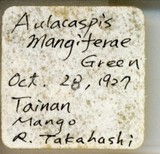 Aulacaspis
mangiferae
Green
Oct. 28, 1927
Tainan
Mango
R. Takahashi